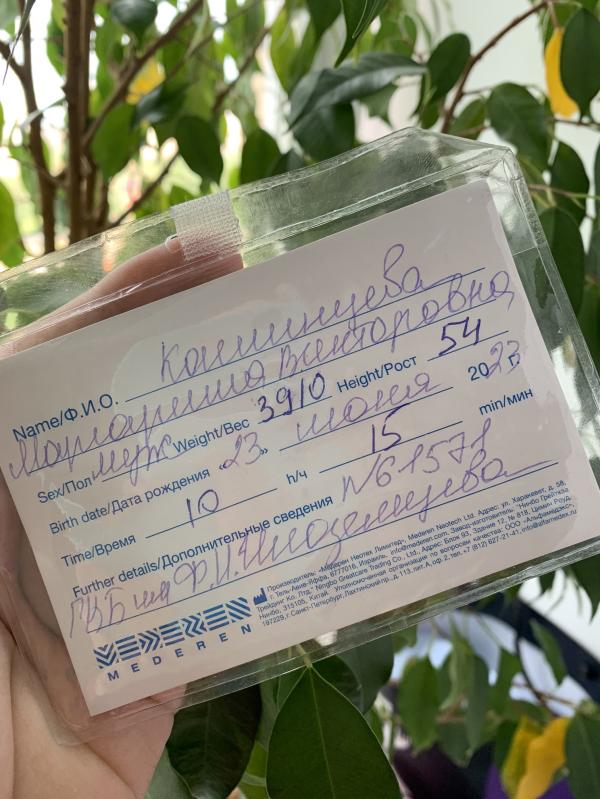 Name/Ф.И.О. Каминцева
Маргарита Викторовна
Sex/Пол муж Weight/Вес 3910 Height/Рост 54
Birth date/Дата рождения «23» июня 2023 г.
Time/Время 10 h/ч 15 min/мин
Further details/Дополнительные сведения N61571
ГКБ им Ф.И. Иноземцева
MEDEREN
MEDEREN
Производитель: «Медерен Неотех Лимитед», Mederen Neotech Ltd. Адрес: ул. Харакевет, д. 58,
г. Тель-Авив-Яффа, 6777016, Израиль. info@mederen.com. Завод-изготовитель: "Нинбо Грейткэа
Трейдинг Ко. Лтд." Ningbo Greatcare Trading Co., Ltd., Адрес: Блок 93, Здание 12, № 818, Цимин Роуд,
Нинбо, 315105, Китай. Уполномоченная организация по вопросам качества: ООО «Альфамедэкс»,
197229, г. Санкт-Петербург, Лахтинский пр. д. 113, лит. А, оф. 2, тел. +7 (812) 627-21-41, info@alfamedex.ru